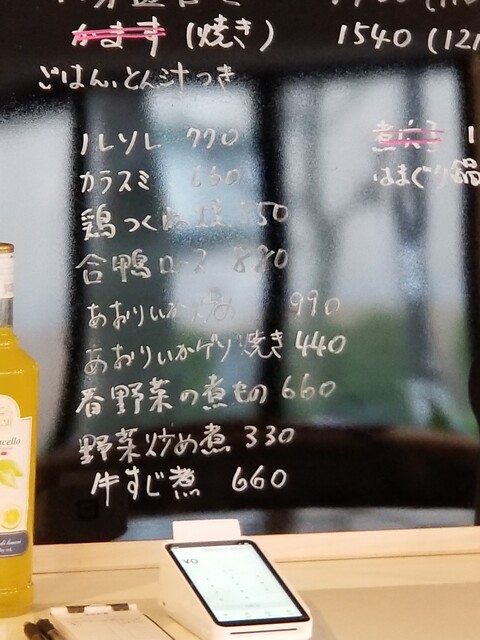 かます (焼き) 1540 (121
ごはん、とん汁つき
ノレソレ 770
煮穴子 1
カラスミ 660
はまぐり鍋
鶏つくね焼 550
合鴨ロース 880
あおりいか炒め 990
あおりいかゲソ焼き 440
春野菜の煮もの 660
野菜炒め煮 330
牛すじ煮 660
¥0